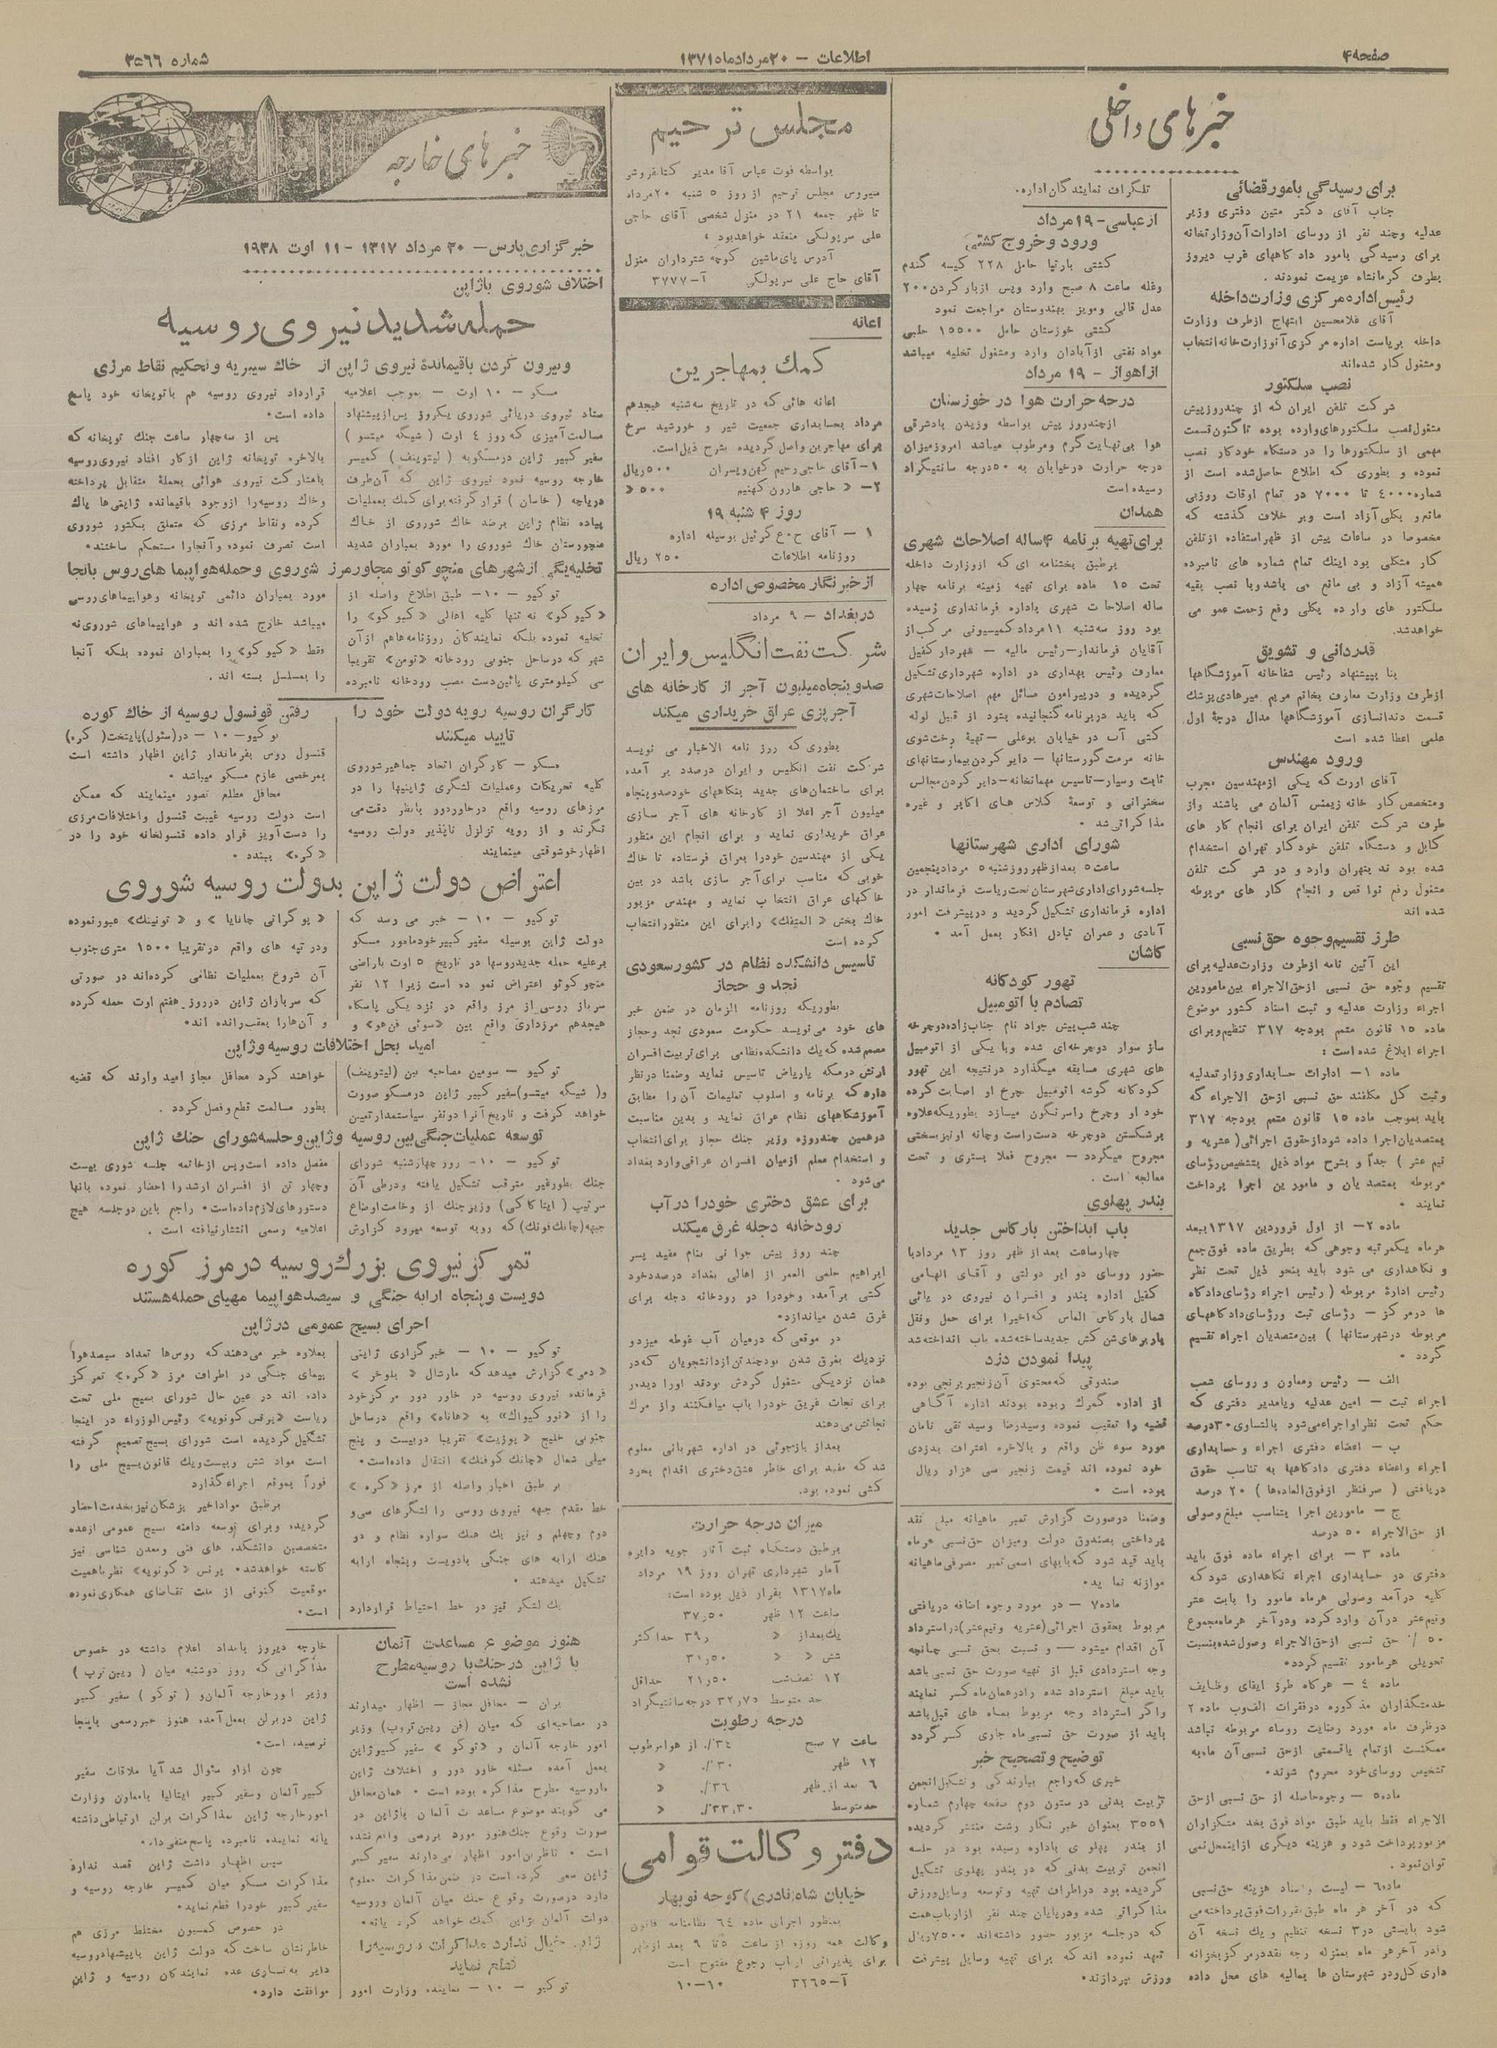 صفحه۴
اطلاعات – ۲۰ مردادماه ۱۳۷۱
شماره ۳۵۶۶
خبرهای داخلی
برای رسیدگی بامورقضائی
جناب آقای دکتر متین دفتری وزیر
عدلیه وچند نفر از روسای ادارات آن وزارتخانه
برای رسیدگی بامور دادگاههای غرب دیروز
بطرف کرمانشاه عزیمت نمودند .
رئیس اداره مرکزی وزارت داخله
آقای غلامحسین ابتهاج ازطرف وزارت
داخله بریاست اداره مرکزی آنوزارتخانه انتخاب
ومشغول کار شده‌اند
نصب سلکتور
شرکت تلفن ایران که از چندروزپیش
مشغول نصب سلکتورهای وارده بوده تاکنون قسمت
مهمی از سلکتورها را در دستگاه خودکار نصب
نموده و بطوری که اطلاع حاصل شده است از
شماره ۴۰۰۰ تا ۷۰۰۰ در تمام اوقات روزبی
مانع و بکلی آزاد است وبر خلاف گذشته که
مخصوصا در ساعات پیش از ظهر استفاده ازتلفن
کار مشکلی بود اینک تمام شماره های نامبرده
همیشه آزاد و بی مانع می باشد وبا نصب بقیه
سلکتور های وارده بکلی رفع زحمت عمومی
خواهدشد.
قدردانی و تشویق
بنا بپیشنهاد رئیس شفاخانه آموزشگاهها
ازطرف وزارت معارف بخانم مریم میرهادی پزشک
قسمت دندانسازی آموزشگاهها مدال درجهٔ اول
علمی اعطا شده است
ورود مهندس
آقای اورت که یکی ازمهندسین مجرب
ومتخصص کار خانه زیمنس آلمان می باشند واز
طرف شرکت تلفن ایران برای انجام کار های
کابل و دستگاه تلفن خودکار تهران استخدام
شده بود ند بتهران وارد و در شرکت تلفن
مشغول رفع نواقص و انجام کار های مربوطه
شده اند
طرز تقسیم وجوه حق نسبی
این آئین نامه ازطرف وزارت عدلیه برای
تقسیم وجوه حق نسبی ازحق الاجراء بین مامورین
اجراء وزارت عدلیه و ثبت اسناد کشور موضوع
ماده ۱۵ قانون متمم بودجه ۳۱۷ تنظیم وبرای
اجراء ابلاغ شده است :
ماده ۱– ادارات حسابداری وزارتعدلیه
وثبت کل مکلفند حق نسبی ازحق الاجراء که
باید بموجب ماده ۱۵ قانون متمم بودجه ۳۱۷
بمتصدیان اجرا داده شود ازحقوق اجرائی ( عشریه و
نیم عشر ) جدا و بشرح مواد ذیل بتشخیص رؤسای
مربوطه بمتصدیان و مامورین اجرا پرداخت
نمایند .
ماده ۲– از اول فروردین ۱۳۱۷ ببعد
هرماه یکمرتبه وجوهی که بطریق ماده فوق جمع
و نگاهداری می شود باید بنحو ذیل تحت نظر
رئیس ادارهٔ مربوطه ( رئیس اجراء رؤسای دادگاه
ها درمرکز – رؤسای ثبت ورؤسای دادگاههای
مربوطه درشهرستانها ) بین متصدیان اجراء تقسیم
گردد .
الف – رئیس ومعاون و روسای شعب
اجراء ثبت – امین عدلیه ویامدیر دفتری که
حکم تحت نظر اواجراء می شود بالتساوی ۳۰ درصد
ب – اعضاء دفتری اجراء و حسابداری
اجراء واعضاء دفتری دادگاهها به تناسب حقوق
دریافتی ( صرفنظر ازفوق العاده‌ها ) ۲۰ درصد
ج – مامورین اجرا بتناسب مبلغ وصولی
از حق الاجراء ۵۰ درصد
ماده ۳ – برای اجراء ماده فوق باید
دفتری در حسابداری اجراء نگاهداری شود که
کلیه درآمد وصولی هرماه مامور را بابت عشر
ونیم عشر درآن وارد کرده ودر آخر هرماه مجموع
۵۰ ٪ حق نسبی ازحق الاجراء وصول شده بنسبت
تحویلی هرمامور تقسیم گردد.
ماده ٤ – هرگاه طرز ایفای وظایف
خدمتگذاران مذکوره در فقرات الف وب ماده ۲
درظرف ماه مورد رضایت روساء مربوطه نباشد
ممکنست از تمام یاقسمتی ازحق نسبی آن ماه به
تشخیص روسای خود محروم شوند .
ماده۵ – وجوه حاصله از حق نسبی ازحق
الاجراء فقط باید طبق مواد فوق بخد متگزاران
مزبور پرداخت شود و هزینه دیگری ازاین محل نمی
توان نمود .
ماده۶ – لیست واسناد هزینه حق نسبی
که در آخر هر ماه طبق مقررات فوق پرداخته می
شود بایستی در۳ نسخه تنظیم و یک نسخه آن
رادر آخر هر ماه بمنزله وجه نقد در مرکز بخزانه
داری کل ودر شهرستان ها بمالیه های محل داده
تلگراف نمایندگان اداره .
ازعباسی – ۱۹ مرداد
ورود وخروج کشتی
کشتی بارتیا حامل ۲۲۸ کیسه گندم
وغله ساعت ۸ صبح وارد وپس ازبار کردن ۲۰۰
عدل قالی ومویز بهندوستان مراجعت نمود
کشتی خوزستان حامل ۱۵۵۰۰ حلبی
مواد نفتی ازآبادان وارد ومشغول تخلیه میباشد
ازاهواز – ۱۹ مرداد
درجه حرارت هوا در خوزستان
ازچندروز پیش بواسطه وزیدن بادشرقی
هوا بی نهایت گرم ومرطوب میباشد امروز میزان
درجه حرارت درخیابان به ۵۰ درجه سانتیگراد
رسیده است
همدان
برای تهیه برنامه ۴ ساله اصلاحات شهری
برطبق بخشنامه ای که ازوزارت داخله
تحت ۱۵ ماده برای تهیه زمینه برنامه چهار
ساله اصلاحات شهری باداره فرمانداری رسیده
بود روز سه‌شنبه ۱۱ مرداد کمیسیونی مرکب از
آقایان فرماندار – رئیس مالیه – شهردار کفیل
معارف رئیس بهداری در اداره شهرداری تشکیل
گردیده و درپیرامون مسائل مهم اصلاحات شهری
که باید دربرنامه گنجانیده بشود از قبیل لوله
کشی آب در خیابان بوعلی – تهیهٔ رختشوی
خانه مرمت گورستانها – دایر کردن بیمارستانهای
ثابت وسیار – تاسیس مهمانخانه – دایر کردن مجالس
سخنرانی و توسعهٔ کلاس های اکابر و غیره
مذاکراتی شد .
شورای اداری شهرستانها
ساعت ۵ بعدازظهر روز شنبه ۵ مرداد پنجمین
جلسه شورای اداری شهرستان تحت ریاست فرماندار در
اداره فرمانداری تشکیل گردید و در پیشرفت امور
آبادی و عمران تبادل افکار بعمل آمد .
کاشان
تهور کودکانه
تصادم با اتومبیل
چند شب پیش جواد نام جناب زاده دوچرخه
ساز سوار دوچرخه‌ای شده وبا یکی از اتومبیل
های شهری مسابقه میگذارد درنتیجه این تهور
کودکانه گوشه اتومبیل چرخ او اصابت کرده
خود او وچرخ راسرنگون میسازد بطوریکه علاوه
برشکستن دوچرخه دست راست وچانه او نیز بسختی
مجروح میگردد – مجروح فعلا بستری و تحت
معالجه است .
بندر پهلوی
بآب انداختن بارکاس جدید
چهارساعت بعدازظهر روز ۱۳ مرداد با
حضور روسای دوایر دولتی و آقای الهامی
کفیل اداره بندر و افسران نیروی دریائی
شمال بارکاس الماس که اخیرا برای حمل ونقل
باربرهای شن کش جدید ساخته شده بآب انداخته شد
پیدا نمودن دزد
صندوقی که محتوی آن زنجیر برنجی بوده
از اداره گمرک ربوده بودند اداره آگاهی
قضیه را تعقیب نموده وسیدرضا وسید تقی نامان
مورد سوء ظن واقع و بالاخره اعتراف بدزدی
خود نموده اند قیمت زنجیر سی هزار ریال
بوده است .
وضمنا درصورت گزارش تمبر ماهیانه مبلغ نقد
پرداختی بصندوق دولت ومیزان حق نسبی هرماه
باید قید شود که بابهای اسمی تمبر مصرفی ماهیانه
موازنه نماید.
ماده۷ – در مورد وجوه اضافه دریافتی
مربوط بحقوق اجرائی (عشریه و نیم عشر) در استرداد
آن اقدام میشود – و نسبت بحق نسبی چنانچه
وجه استردادی قبل از تهیه صورت حق نسبی باشد
باید مبلغ استرداد شده رادر همان ماه کسر نمایند
واگر استرداد وجه مربوط بماه های قبل باشد
باید از صورت حق نسبی ماه جاری کسر گردد
توضیح وتصحیح خبر
خبری که راجع ببازندگی و تشکیل انجمن
تربیت بدنی در ستون دوم صفحه چهارم شماره
۳۵۵۱ بعنوان خبر نگار رشت منتشر گردیده
از بندر پهلوی باداره رسیده بود در جلسه
انجمن تربیت بدنی که در بندر پهلوی تشکیل
گردیده بود دراطراف تهیه و توسعه وسایل ورزش
مذاکراتی شده ودرپایان چند نفر ازارباب همت
که درجلسه مزبور حضور داشته‌اند ۷۵۰۰ ریال
تعهد نموده اند که برای تهیه وسایل پیشرفت
ورزش بپردازند.
مجلس ترحیم
بواسطه فوت عباس آقا مدیر کتابفروش
سیروس مجلس ترحیم از روز ۵ شنبه ۲۰ مرداد
تا ظهر جمعه ۲۱ در منزل شخصی آقای حاجی
علی سرپولکی منعقد خواهدبود .
آدرس پای ماشین کوچه شترداران منزل
آقای حاج علی سرپولکی آ–۳۷۷۷
اعانه
کمک بمهاجرین
اعانه هائی که در تاریخ سه‌شنبه هیجدهم
مرداد بحسابداری جمعیت شیر و خورشید سرخ
برای مهاجرین واصل گردیده بشرح ذیل است.
۱– آقای حاجی رحیم کهن وپسران ۵۰۰ ریال
۲– « حاجی هارون کهنیم ۵۰۰ «
روز ۴ شنبه ۱۹
۱ – آقای ح.ع کرئیل بوسیله اداره
روزنامه اطلاعات ۲۵۰ ریال
ازخبرنگار مخصوص اداره
دربغداد – ۹ مرداد
شرکت نفت انگلیس و ایران
صدوپنجاه میلیون آجر از کارخانه های
آجرپزی عراق خریداری میکند
بطوری که روز نامه الاخبار می نویسد
شرکت نفت انگلیس و ایران درصدد بر آمده
برای ساختمان‌های جدید بنگاههای خود صدوپنجاه
میلیون آجر اعلا از کارخانه های آجر سازی
عراق خریداری نماید و برای انجام این منظور
یکی از مهندسین خودرا بعراق فرستاده تا خاک
خوبی که مناسب برای آجر سازی باشد در بین
خاکهای عراق انتخاب نماید و مهندس مزبور
خاک بخش «المتفک» رابرای این منظور انتخاب
کرده است
تاسیس دانشکده نظام در کشور سعودی
نجد و حجاز
بطوریکه روزنامه الزمان در ضمن خبر
های خود می‌نویسد حکومت سعودی نجد وحجاز
مصمم شده که یک دانشکده نظامی برای تربیت افسران
ارتش درمکه یاریاض تاسیس نماید وضمنا درنظر
دارد که برنامه و اسلوب تعلیمات آن را مطابق
آموزشگاههای نظام عراق نماید و بدین مناسبت
درهمین چندروزه وزیر جنگ حجاز برای انتخاب
و استخدام معلم ازمیان افسران عراقی وارد بغداد
می‌شود .
برای عشق دختری خودرا در آب
رودخانه دجله غرق میکند
چند روز پیش جوانی بنام مفید پسر
ابراهیم حلمی العمر از اهالی بغداد درصدد خود
کشی برآمده وخودرا در رودخانه دجله برای
غرق شدن میاندازد.
در موقعی که درمیان آب غوطه میزد و
نزدیک بغرق شدن بود چند تن از دانشجویان که در
همان نزدیکی مشغول گردش بودند اورا دیده و
برای نجات غریق خودرا بآب میافکنند واز مرگ
نجاتش می‌دهند
بعداز بازجوئی در اداره شهربانی معلوم
شد که مفید برای خاطر عشق دختری اقدام بخود
کشی نموده بود.
میزان درجه حرارت
برطبق دستگاه ثبت آثار جویه دایره
آمار شهرداری تهران روز ۱۹ مرداد
ماه ۱۳۱۷ بقرار ذیل بوده است:
ساعت ۱۲ ظهر ۳۷٫۵۰
یک بعداز « ۳۹٫ حداکثر
شش « « ۳۱٫۵۰
۱۲ نصف شب ۲۱٫۵۰ حداقل
حد متوسط ۳۲٫۷۵ درجه سانتیگراد
درجه رطوبت
ساعت ۷ صبح ۳٤٪ از هوا مرطوب
۱۲ ظهر ۳۰٪ «
۶ بعد از ظهر ۳۶٪ «
حدمتوسط ۳۳٫۳۰٪ «
دفتر وکالت قوامی
خیابان شاه (نادری) کوچه نوبهار
بمنظور اجرای ماده ٦٤ نظامنامه قانون
وکالت همه روزه از ساعت ۵ تا ۹ بعد ازظهر
برای پذیرائی ارباب رجوع مفتوح است
آ–۳۲۶۵ ۱۰–۱۰
خبرهای خارجه
خبرگزاری پارس – ۲۰ مرداد ۱۳۱۷ – ۱۱ اوت ۱۹۳۸
اختلاف شوروی باژاپن
حمله شدید نیروی روسیه
وبیرون کردن باقیماندهٔ نیروی ژاپن از خاک سیبریه و تحکیم نقاط مرزی
مسکو – ۱۰ اوت – بموجب اعلامیه
ستاد نیروی دریائی شوروی یکروز پس ازپیشنهاد
مسالمت آمیزی که روز ٤ اوت ( شیگه میتسو )
سفیر کبیر ژاپن درمسکو به ( لیتوینف ) کمیسر
خارجه روسیه نمود نیروی ژاپن که آن‌طرف
دریاچه ( خاسان ) قرار گرفته برای کمک بعملیات
پیاده نظام ژاپن برضد خاک شوروی از خاک
منچورستان خاک شوروی را مورد بمباران شدید
قرارداد نیروی روسیه هم باتوپخانه خود پاسخ
داده است .
پس از سه‌چهار ساعت جنگ توپخانه که
بالاخره توپخانه ژاپن ازکار افتاد نیروی روسیه
بامشارکت نیروی هوائی بحمله متقابل پرداخته
وخاک روسیه را ازوجود باقیمانده ژاپنی‌ها پاک
کرده ونقاط مرزی که متعلق بکشور شوروی
است تصرف نموده وآنجارا مستحکم ساختند.
تخلیه یکی ازشهرهای منچوکوئو مجاورمرز شوروی وحمله هواپیماهای روس بانجا
توکیو – ۱۰– طبق اطلاع واصله از
«کیوکو» نه تنها کلیه اهالی «کیوکو» را
تخلیه نموده بلکه نمایندگان روزنامه‌هاهم ازآن
شهر که درساحل جنوبی رودخانه «تومن» تقریبا
سی کیلومتری پائین‌دست مصب رودخانه نامبرده
مورد بمباران دائمی توپخانه وهواپیماهای روسی
میباشد خارج شده اند و هواپیماهای شوروی نه
فقط «کیوکو» را بمباران نموده بلکه آنجا
را بمسلسل بسته اند .
کارگران روسیه رویه دولت خود را
تایید میکنند
مسکو – کارگران اتحاد جماهیر شوروی
کلیه تحریکات وعملیات لشگری ژاپنیها را در
مرزهای روسیه واقع درخاوردور بانظر دقت می
نگرند و از رویه تزلزل ناپذیر دولت روسیه
اظهار خوشوقتی مینمایند
رفتن قونسول روسیه از خاک کوره
توکیو – ۱۰ – در(سئول) پایتخت( کره)
قنسول روس بفرماندار ژاپن اظهار داشته است
بمرخصی عازم مسکو میباشد .
محافل مطلع تصور مینمایند که ممکن
است دولت روسیه غیبت قنسول واختلافات مرزی
را دست‌آویز قرار داده قنسولخانه خود را در
«کره» ببندد .
اعتراض دولت ژاپن بدولت روسیه شوروی
توکیو – ۱۰ – خبر می رسد که
دولت ژاپن بوسیله سفیر کبیر خود مامور مسکو
برعلیه حمله جدید روسها در تاریخ ۵ اوت باراضی
منچوکوئو اعتراض نموده است زیرا ۱۲ نفر
سرباز روسی از مرز واقع در نزدیکی پاسگاه
هیجدهم مرزداری واقع بین «سوئی فن‌هو» و
«پوگرانی چانایا» و «تونینگ» عبور نموده
ودر تپه های واقع درتقریبا ۱۵۰۰ متری جنوب
آن شروع بعملیات نظامی کرده‌اند در صورتی
که سربازان ژاپن درروز هفتم اوت حمله کرده
و آن‌هارا بعقب رانده اند.
امید بحل اختلافات روسیه وژاپن
توکیو – ۱۰ – سومین مصاحبه بین (لیتوینف)
و( شیگه میتسو) سفیر کبیر ژاپن درمسکو صورت
خواهد گرفت و تاریخ آنرا دونفر سیاستمدار تعیین
خواهند کرد محافل مجاز امید وارند که قضیه
بطور مسالمت قطع وفصل گردد .
توسعه عملیات جنگی بین روسیه وژاپن وجلسه شورای جنگ ژاپن
توکیو – ۱۰– روز چهارشنبه شورای
جنگ بطورغیر مترقب تشکیل یافته ودرطی آن
سرتیپ ( ایتاکاکی) وزیرجنگ از وخامت اوضاع
جبهه(چانک‌فونک) که روبه توسعه میرود گزارش
مفصل داده است وپس ازخاتمه جلسه شوری بیست
وچهار تن از افسران ارشد را احضار نموده بانها
دستورهای لازم داده است. راجع باین دوجلسه هیچ
اعلامیه رسمی انتشار نیافته است .
تمرکز نیروی بزرگ روسیه درمرز کوره
دویست وپنجاه ارابه جنگی و سیصد هواپیما مهیای حمله هستند
اجرای بسیج عمومی درژاپن
توکیو – ۱۰ – خبرگزاری ژاپنی
«دمی» گزارش میدهد که مارشال «بلوخر»
فرمانده نیروی روسیه در خاور دور مرکز خود
را از «نوو کیواک» به «هانا» واقع درساحل
جنوبی خلیج «پوزیت» تقریبا دویست و پنج
میلی شمال «چانگ کوفنگ» انتقال داده‌است.
بر طبق اخبار واصله از مرز «کره»
خط مقدم جبهه نیروی روسی را لشگرهای سی و
دوم وچهلم و نیز یک هنگ سواره نظام و دو
هنگ ارابه های جنگی بادویست وپنجاه ارابه
تشکیل میدهند .
یک لشگر نیز در خط احتیاط قراردارد
بعلاوه خبر می‌دهند که روس‌ها تعداد سیصد هوا
پیمای جنگی در اطراف مرز «کره» تمرکز
داده اند در عین حال شورای بسیج ملی تحت
ریاست «پرنس کونویه» رئیس الوزراء در اینجا
تشکیل گردیده است شورای بسیج تصمیم گرفته
است مواد شش وبیست ویک قانون بسیج ملی را
فوراً بموقع اجراء گذارد
برطبق مواد اخیر پزشکان نیز بخدمت احضار
گردیده وبرای توسعه دامنه بسیج عمومی ازعده
متخصصین دانشکده های فنی ومعدن شناسی نیز
کاسته خواهدشد. پرنس «کونویه» نظر باهمیت
موقعیت کنونی از ملت تقاضای همکاری نموده
است.
هنوز موضوع مساعدت آلمان
با ژاپن در جنگ با روسیه مطرح
نشده است
برلن – محافل مجاز – اظهار میدارند
در مصاحبه‌ای که میان (فن ریبن تروپ) وزیر
امور خارجه آلمان و «توگو» سفیر کبیر ژاپن
بعمل آمده مسئله خاور دور و اختلاف ژاپن
باروسیه مطرح مذاکره بوده است . همان محافل
می گویند موضوع مساعدت آلمان باژاپن در
صورت وقوع جنگ هنوز مورد بررسی واقع نشده
است . ناظرین امور اظهار می‌دارند سفیر کبیر
ژاپن سعی کرده است در ضمن مذاکرات معلوم
دارد درصورت وقوع جنگ میان آلمان وروسیه
دولت آلمان بژاپن کمک خواهد کرد یا نه.
ژاپن خیال ندارد مذاکرات با روسیه را
قطع نماید
توکیو – ۱۰ – نماینده وزارت امور
خارجه دیروز بامداد اعلام داشته در خصوص
مذاکراتی که روز دوشنبه میان ( ریبن ترپ )
وزیر امورخارجه آلمان و ( توگو ) سفیر کبیر
ژاپن دربرلن بعمل آمده هنوز خبررسمی باینجا
نرسیده است .
چون ازاو سئوال شد آیا ملاقات سفیر
کبیر آلمان وسفیر کبیر ایتالیا بامعاون وزارت
امورخارجه ژاپن بمذاکرات برلن ارتباطی داشته
یانه نماینده نامبرده پاسخ منفی داد.
سپس اظهار داشت ژاپن قصد ندارد
مذاکرات مسکو میان کمیسر خارجه روسیه و
سفیر کبیر خودرا قطع نماید.
در خصوص کمسیون مختلط مرزی هم
خاطرنشان ساخت که دولت ژاپن باپیشنهاد روسیه
دایر به تساوی عده نمایندگان روسیه و ژاپن
موافقت دارد.